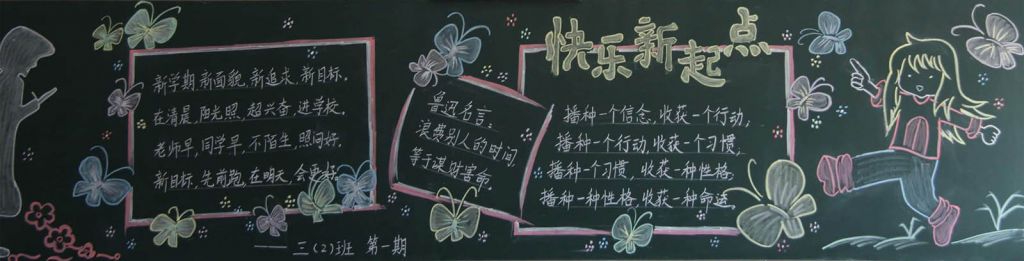 快乐新起点
新学期,新面貌,新追求,新目标。
在清晨,阳光照,超兴奋,进学校。
老师早,同学早,不陌生,照问好。
新目标,先前跑,在明天,会更好。
鲁迅名言
浪费别人的时间
等于谋财害命。
播种一个信念,收获一个行动,
播种一个行动,收获一个习惯,
播种一个习惯,收获一种性格,
播种一种性格,收获一种命运。
——三(2)班 第一期